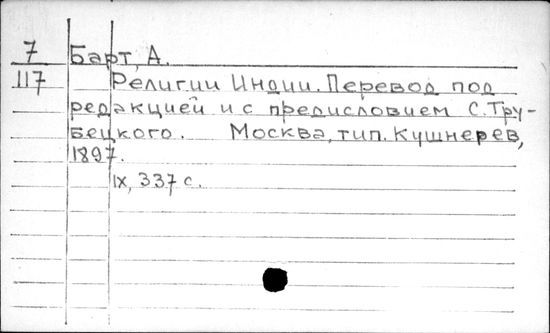 7 Барт, А.
117 Религии Индии. Перевод под
редакцией и с предисловием С. Тру-
бецкого. Москва, тип. Кушнерев,
1897.
IX, 337 с.